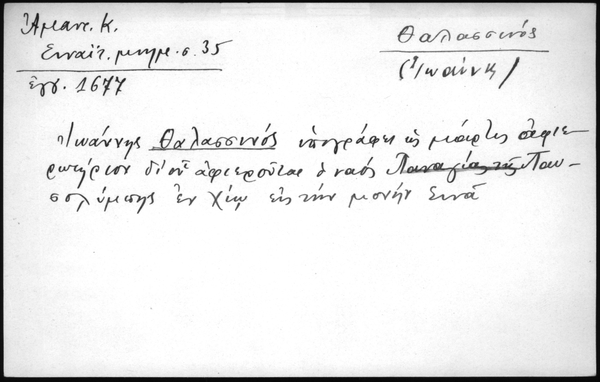 Ἀμαντ. Κ.
Σιναϊτ. μνημ. σ. 35
ἔγγ. 1677
Θαλασσινός
(Ἰωάννης)
Ἰωάννης Θαλασσινός ὑπογράφει ὡς μάρτυς ἀφιε-
ρωτήριον δι' οὗ ἀφιεροῦται ὁ ναός Παναγίας τῆς Παυ-
σολύμπης ἐν Χίῳ εἰς τὴν μονήν Σινᾶ